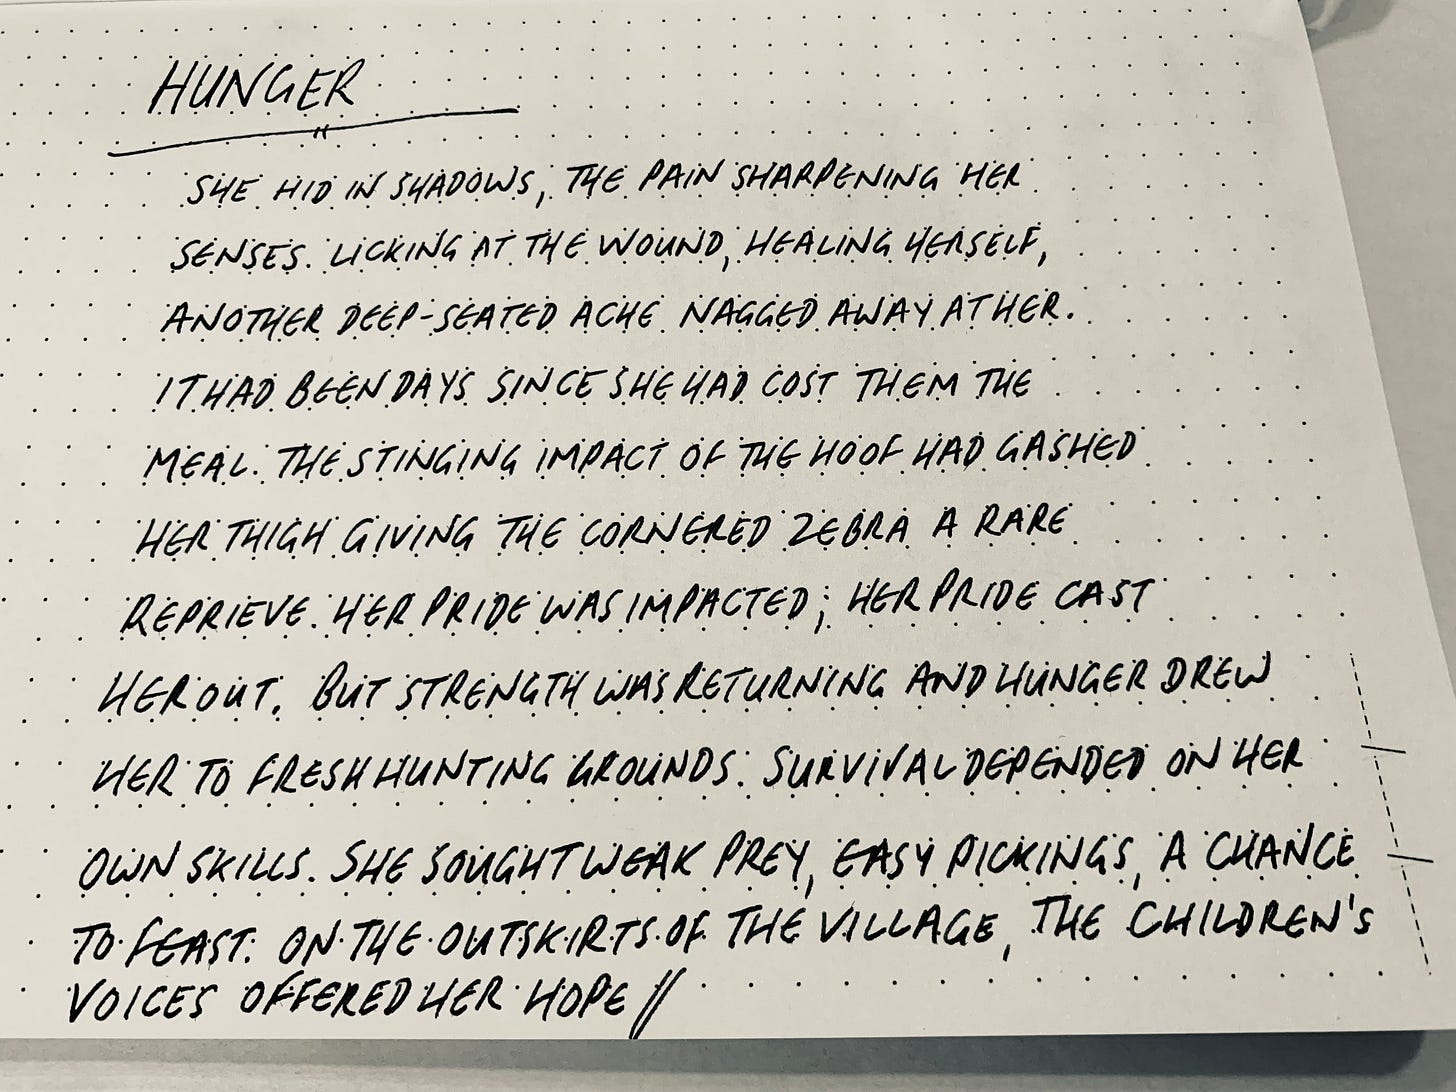 HUNGER
"
SHE HID IN SHADOWS, THE PAIN SHARPENING HER
SENSES. LICKING AT THE WOUND, HEALING HERSELF,
ANOTHER DEEP-SEATED ACHE NAGGED AWAY AT HER.
IT HAD BEEN DAYS SINCE SHE HAD COST THEM THE
MEAL. THE STINGING IMPACT OF THE HOOF HAD GASHED
HER THIGH GIVING THE CORNERED ZEBRA A RARE
REPRIEVE. HER PRIDE WAS IMPACTED; HER PRIDE CAST
HER OUT. BUT STRENGTH WAS RETURNING AND HUNGER DREW
HER TO FRESH HUNTING GROUNDS. SURVIVAL DEPENDED ON HER
OWN SKILLS. SHE SOUGHT WEAK PREY, EASY PICKINGS, A CHANCE
TO FEAST. ON THE OUTSKIRTS OF THE VILLAGE, THE CHILDREN'S
VOICES OFFERED HER HOPE //